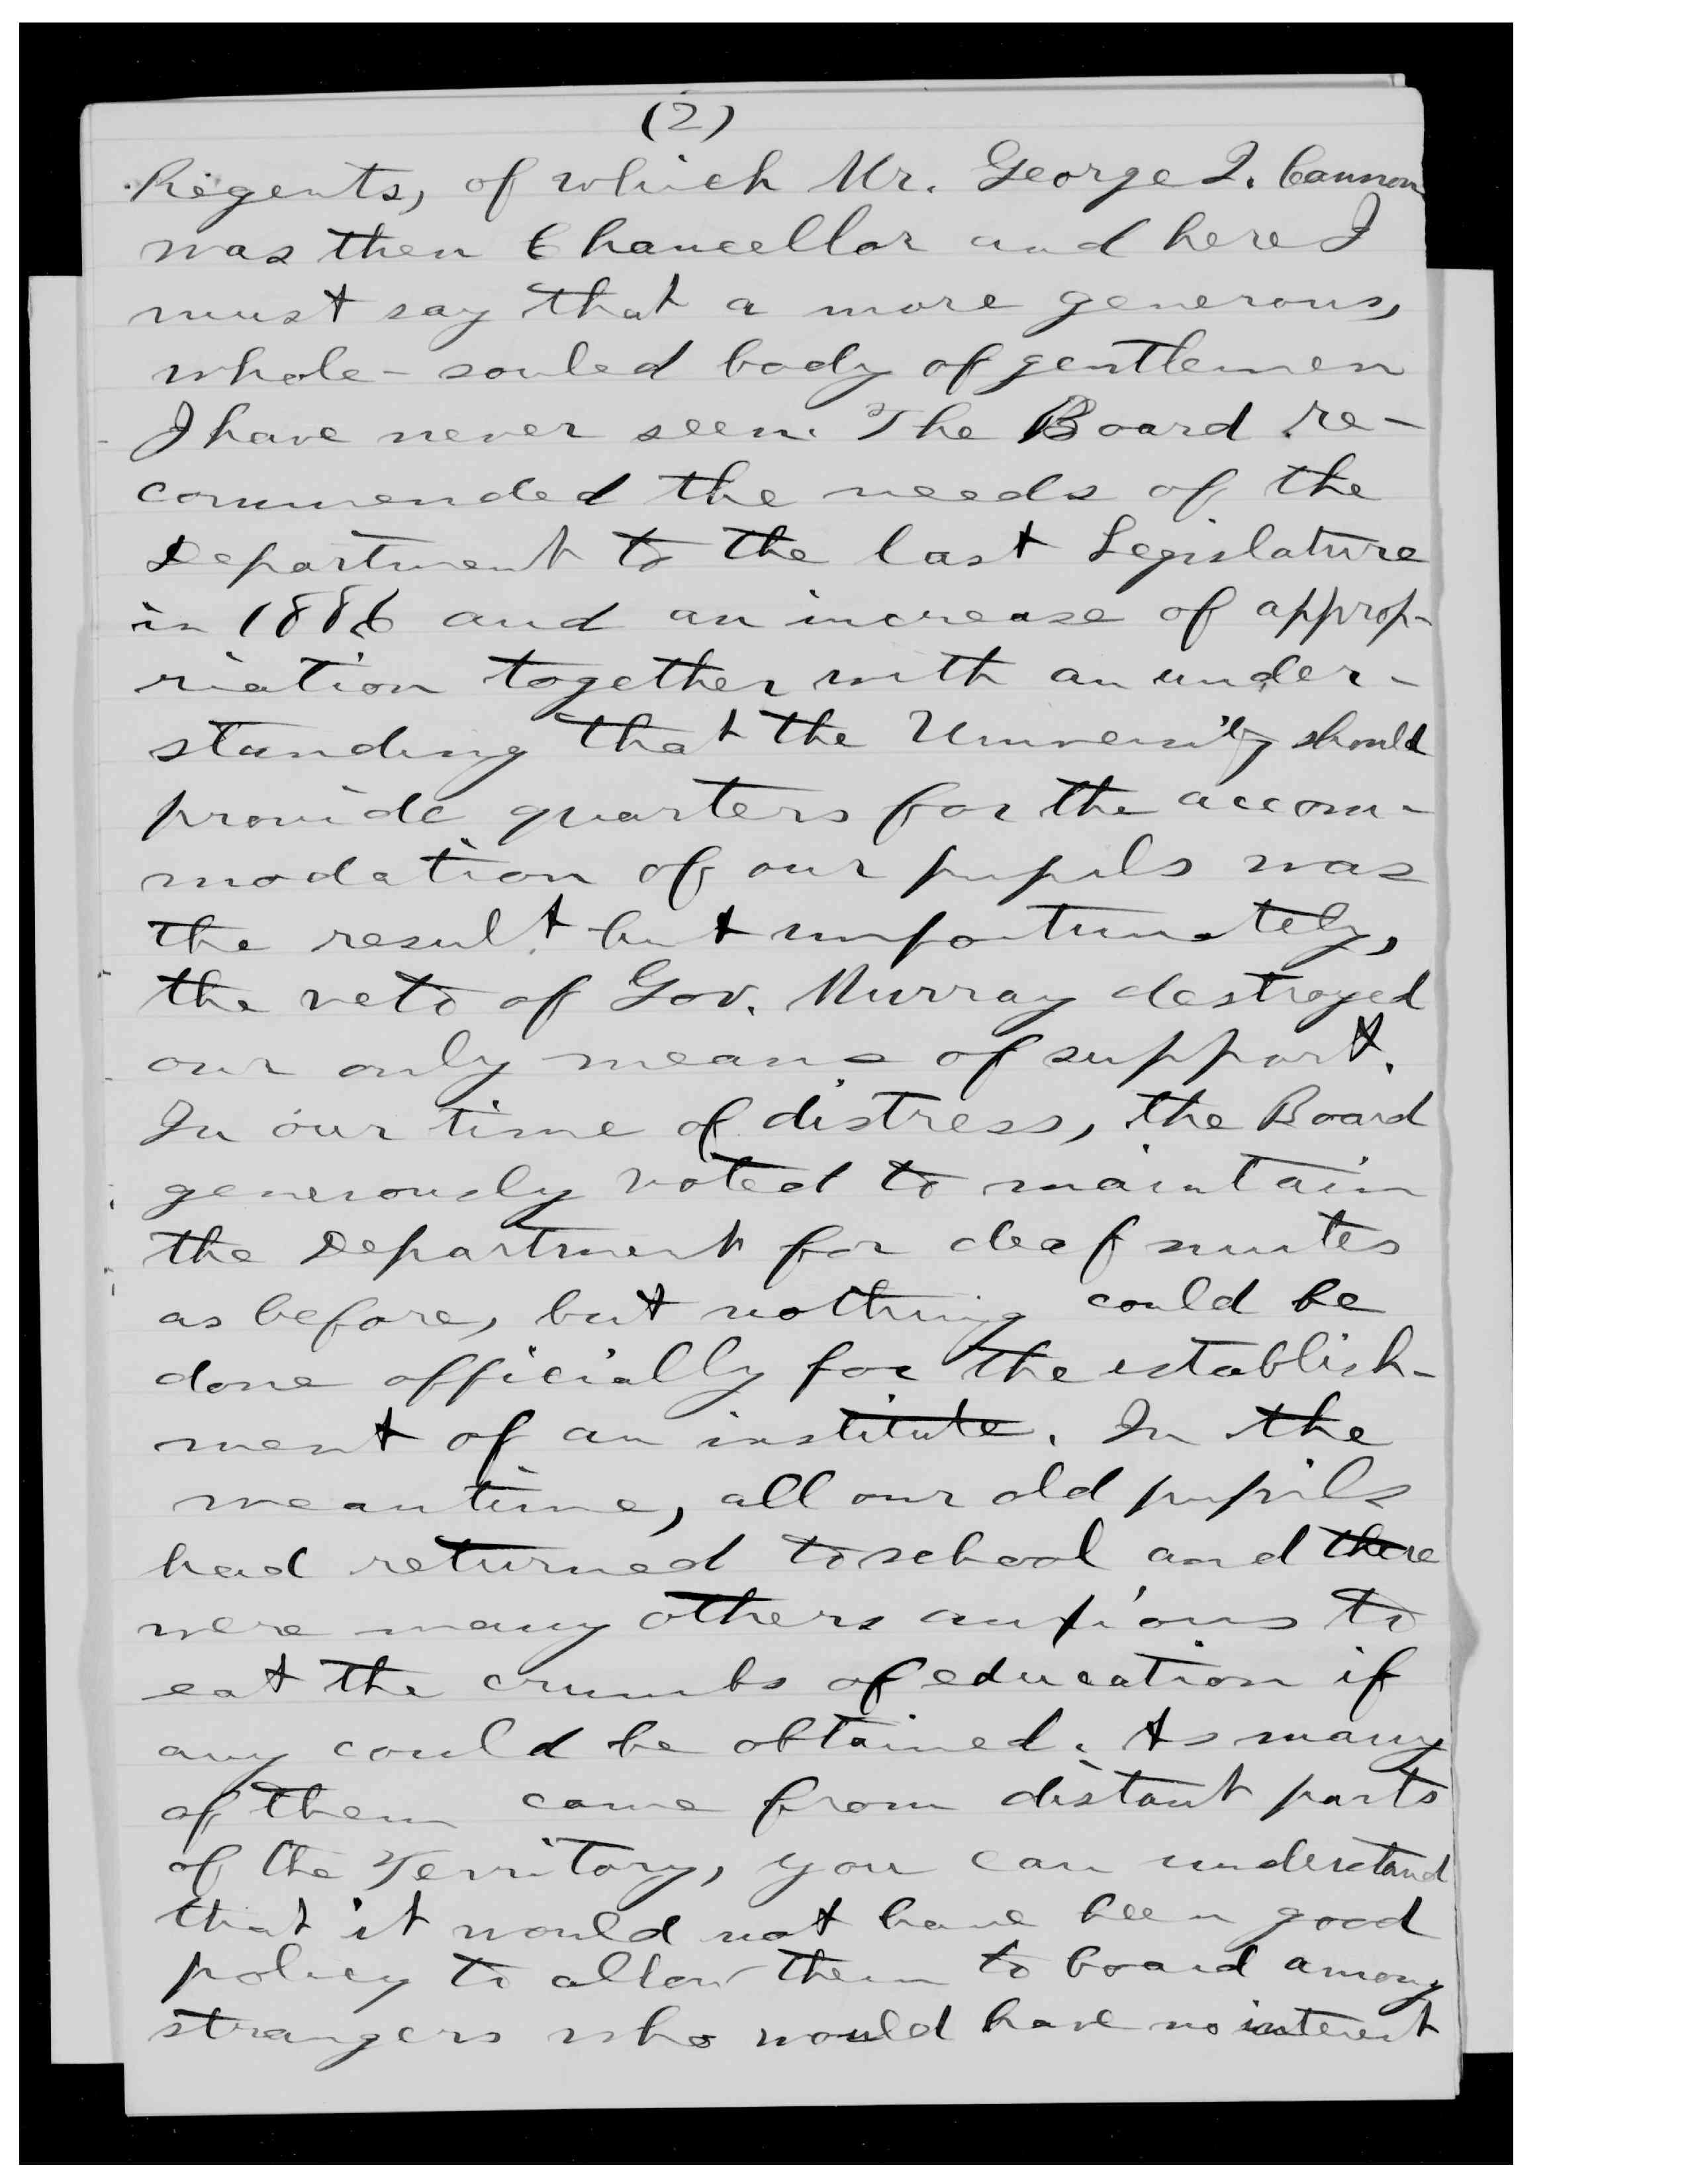 (2)
Regents, of which Mr. George Q. Cannon
was then Chancellor and here I
must say that a more generous,
whole-souled body of gentlemen
I have never seen. The Board re-
commended the needs of the
Department to the last Legislature
in 1886 and an increase of approp-
riation together with an under-
standing that the University should
provide quarters for the accom-
modation of our pupils was
the result but unfortunately,
the veto of Gov. Murray destroyed
our only means of support.
In our time of distress, the Board
generously voted to maintain
the Department for deaf mutes
as before, but nothing could be
done officially for the establish-
ment of an institute. In the
meantime, all our old pupils
had returned to school and there
were many others anxious to
eat the crumbs of education if
any could be obtained. As many
of them came from distant parts
of the Territory, you can understand
that it would not have been good
policy to allow them to board among
strangers who would have no interest